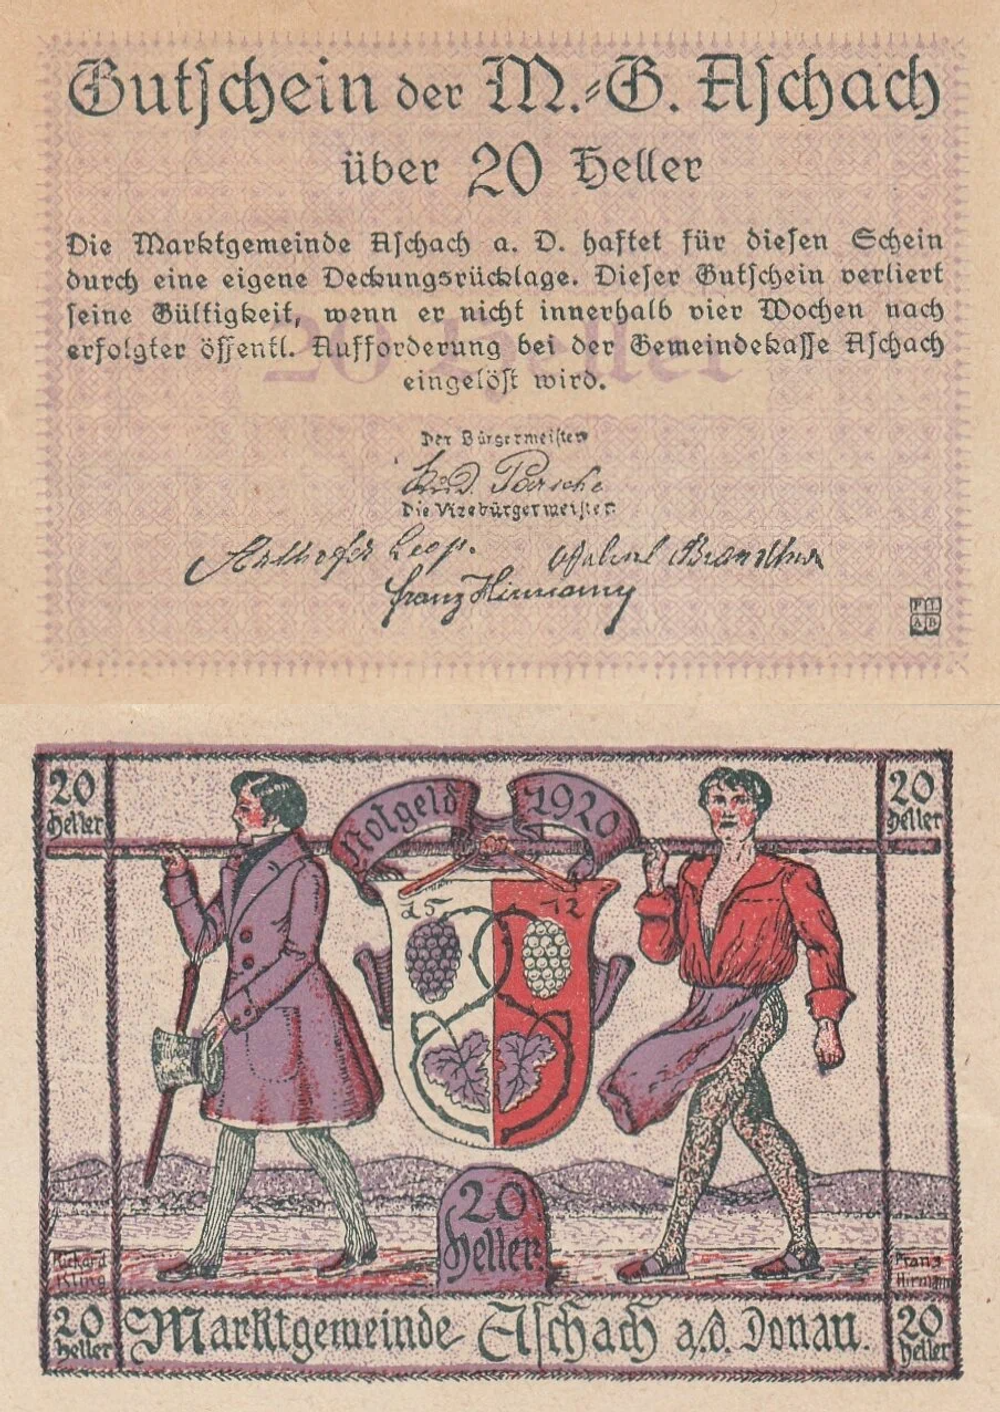 Gutschein der M.-G. Aschach
über 20 Heller
Die Marktgemeinde Aschach a. D. haftet für diesen Schein
durch eine eigene Deckungsrücklage. Dieser Gutschein verliert
seine Gültigkeit, wenn er nicht innerhalb vier Wochen nach
erfolgter öffentl. Aufforderung bei der Gemeindekasse Aschach
eingelöst wird.
20 Heller
Der Bürgermeister
Die Vizebürgermeister
Leop.
Franz Hirmann
20
Heller
Notgeld 1920
20
Heller
15 72
20
Heller
Richard
Franz
Hirmann
20
Heller
Marktgemeinde Aschach a/d. Donau.
20
Heller